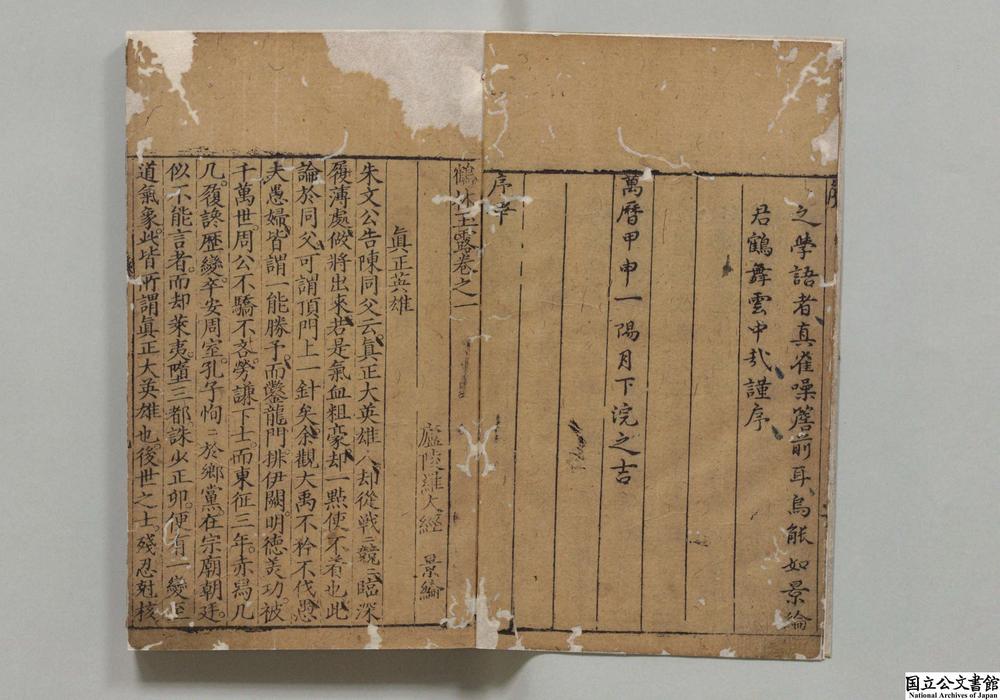 之學語者真雀噪簷前耳烏能如景綸
君鶴舞雲中哉謹序
萬曆甲申一陽月下浣之吉
序
鶴林玉露卷之一
廬陵羅大經 景綸
眞正英雄
朱文公告陳同父云眞正大英雄人却從戰〻競〻臨深
履薄處做將出來若是氣血粗豪却一點使不着也此
論於同父可謂頂門上一針矣余觀大禹不矜不伐愚
夫愚婦皆謂一能勝予而鑿龍門排伊闕明德美功被
千萬世周公不驕不吝勞謙下士而東征三年赤舄几
几履讒歷變卒安周室孔子恂〻於鄉黨在宗廟朝廷
似不能言者而却萊夷墮三都誅少正卯便有一變至
道氣象此皆所謂眞正大英雄也後世之士殘忍尅核
国立公文書館
National Archives of Japan